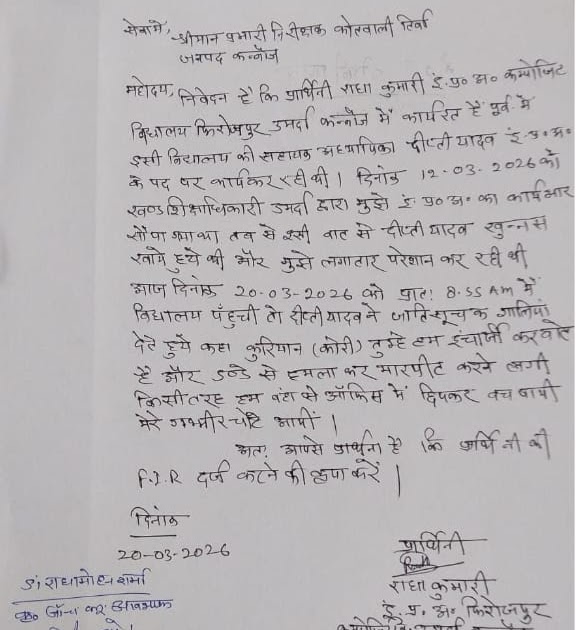 सेवामें,
श्रीमान प्रभारी निरीक्षक कोतवाली तिर्वा
जनपद कन्नौज
महोदय, निवेदन है कि प्रार्थिनी राधा कुमारी इं०प्र०अ० कम्पोजिट
विद्यालय फिरोजपुर उमर्दा कन्नौज में कार्यरत हैं पूर्व में
इसी विद्यालय की सहायक अध्यापिका दीप्ती यादव इं०प्र०अ०
के पद पर कार्य कर रही थी। दिनांक 12-03-2026 को
खण्ड शिक्षाधिकारी उमर्दा द्वारा मुझे इं०प्र०अ० का कार्यभार
सौंपा गया था तब से इसी बात से दीप्ती यादव खुन्नस
खाये हुये थी और मुझे लगातार परेशान कर रही थी
आज दिनांक 20-03-2026 को प्रात: 8.55 AM में
विद्यालय पहुँची तो दीप्ती यादव ने जातिसूचक गालियां
देते हुये कहा कुरियान (कोरी) तुम्हे हम इंचार्जी करवाते
है और डन्डे से हमला कर मारपीट करने लगी
किसी तरह हम वहां से ऑफिस में छिपकर बच पायी
मेरे गम्भीर चोटे आयीं।
अत: आपसे प्रार्थना है कि प्रार्थिनी की
F.I.R दर्ज करने की कृपा करें।
दिनांक
20-03-2026
प्रार्थिनी
राधा कुमारी
इं. प्र. अ. फिरोजपुर
S। राधामोहन शर्मा
कृ० जाँच कर आवश्यक